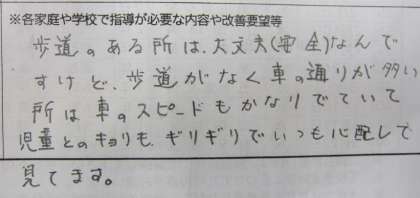 ※各家庭や学校で指導が必要な内容や改善要望等
歩道のある所は、大丈夫(安全)なんで
すけど、歩道がなく車の通りが多い
所は車のスピードもかなりでていて
児童とのキョリも、ギリギリでいつも心配して
見てます。